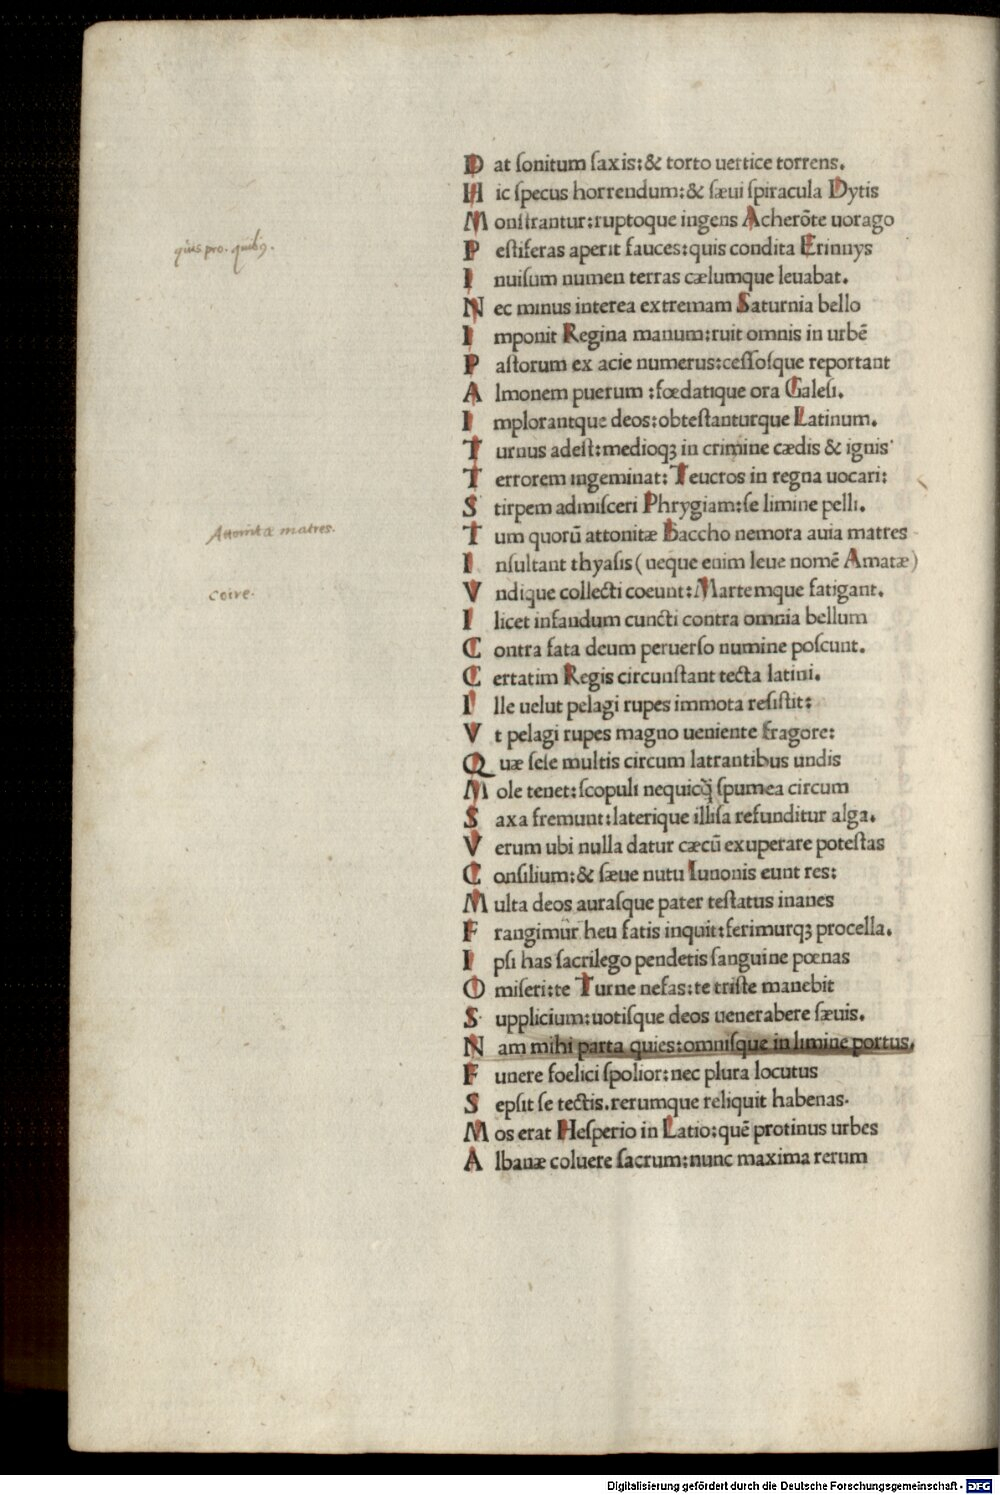 D at ſonitum ſaxis:& torto uertice torrens.
H ic ſpecus horrendum:& ſæui ſpiracula Dytis
M onſtrantur:ruptoque ingens Acherōte uorago
quis pro. quibꝰ.
P eſtiferas aperit fauces:quis condita Erinnys
I nuiſum numen terras cælumque leuabat.
N ec minus interea extremam Saturnia bello
I mponit Regina manum:ruit omnis in urbē
P aſtorum ex acie numerus:ceſſoſque reportant
A lmonem puerum :fœdatique ora Galeſi.
I mplorantque deos:obteſtanturque Latinum.
T urnus adeſt:medioqꝫ in crimine cædis & ignis
T errorem ingeminat: Teucros in regna uocari:
S tirpem admiſceri Phrygiam:ſe limine pelli.
Attonitæ matres.
T um quorū attonitæ Baccho nemora auia matres
I nſultant thyaſis (neque enim leue nomē Amatæ)
coire.
V ndique collecti coeunt:Martemque fatigant.
I licet infandum cuncti contra omnia bellum
C ontra fata deum peruerſo numine poſcunt.
C ertatim Regis circunſtant tecta latini.
I lle uelut pelagi rupes immota reſiſtit:
V t pelagi rupes magno ueniente fragore:
Q uæ ſeſe multis circum latrantibus undis
M ole tenet:ſcopuli nequicq̄ ſpumea circum
S axa fremunt:laterique illiſa refunditur alga.
V erum ubi nulla datur cæcū exuperare poteſtas
C onſilium:& ſæue nutu Iunonis eunt res:
M ulta deos auraſque pater teſtatus inanes
F rangimur heu fatis inquit:ferimurqꝫ procella.
I pſi has ſacrilego pendetis ſanguine pœnas
O miſeri:te Turne nefas:te triſte manebit
S upplicium:uotiſque deos uenerabere ſæuis.
N am mihi parta quies:omniſque in limine portus.
F unere foelici ſpolior:nec plura locutus
S epſit ſe tectis.rerumque reliquit habenas.
M os erat Heſperio in Latio:quē protinus urbes
A lbanæ coluere ſacrum:nunc maxima rerum
Digitalisierung gefördert durch die Deutsche Forschungsgemeinschaft - DFG